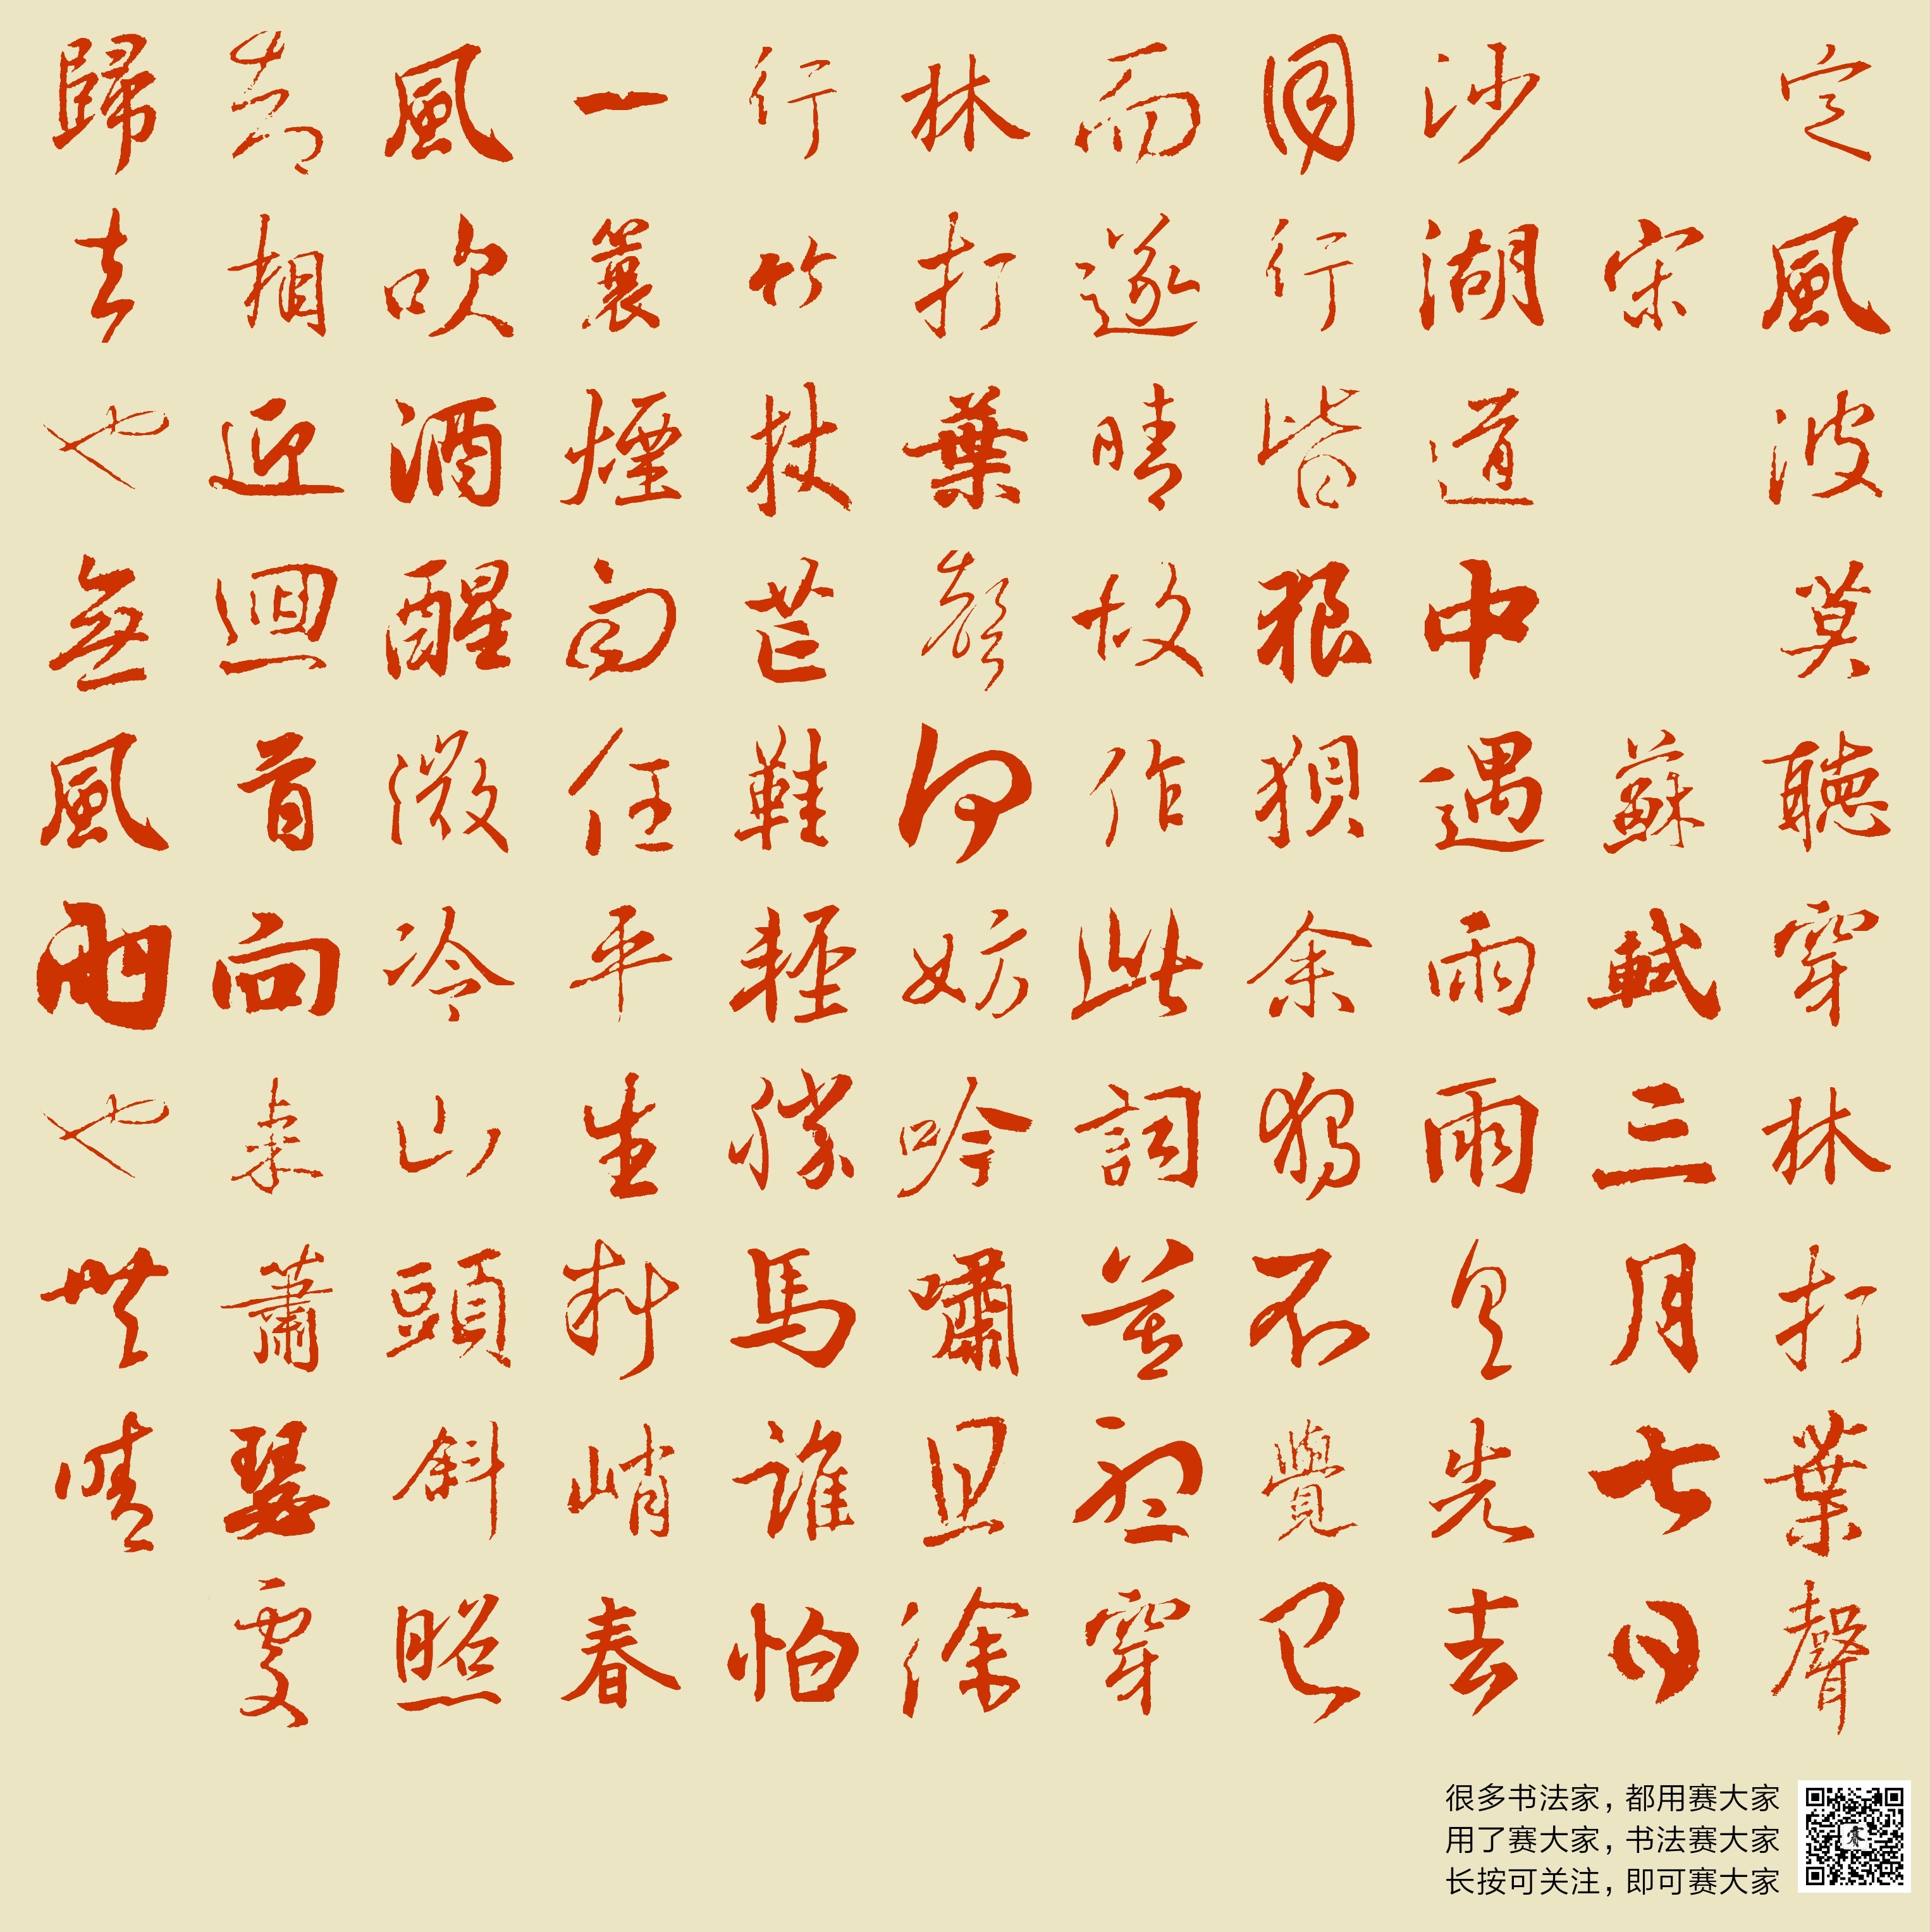 定風波莫聽穿林打葉聲
宋 蘇軾三月七日
沙湖道中遇雨雨具先去
同行皆狼狽余獨不覺已
而遂晴故作此詞莫聽穿
林打葉聲何妨吟嘯且徐
行竹杖芒鞋輕勝馬誰怕
一簑煙雨任平生料峭春
風吹酒醒微冷山頭斜照
却相迎迴首向來蕭瑟處
歸去也無風雨也無晴
很多书法家，都用赛大家
用了赛大家，书法赛大家
长按可关注，即可赛大家
赛